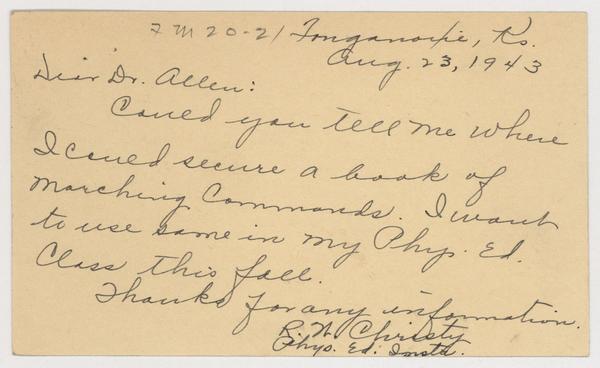 FM 20-21 Tonganoxie, Ks.
Aug. 23, 1943
Dear Dr. Allen:
Could you tell me where
I could secure a book of
Marching Commands. I want
to use same in my Phys. Ed.
Class this fall.
Thanks for any information.
R. N. Christy
Phys. Ed. Instr.